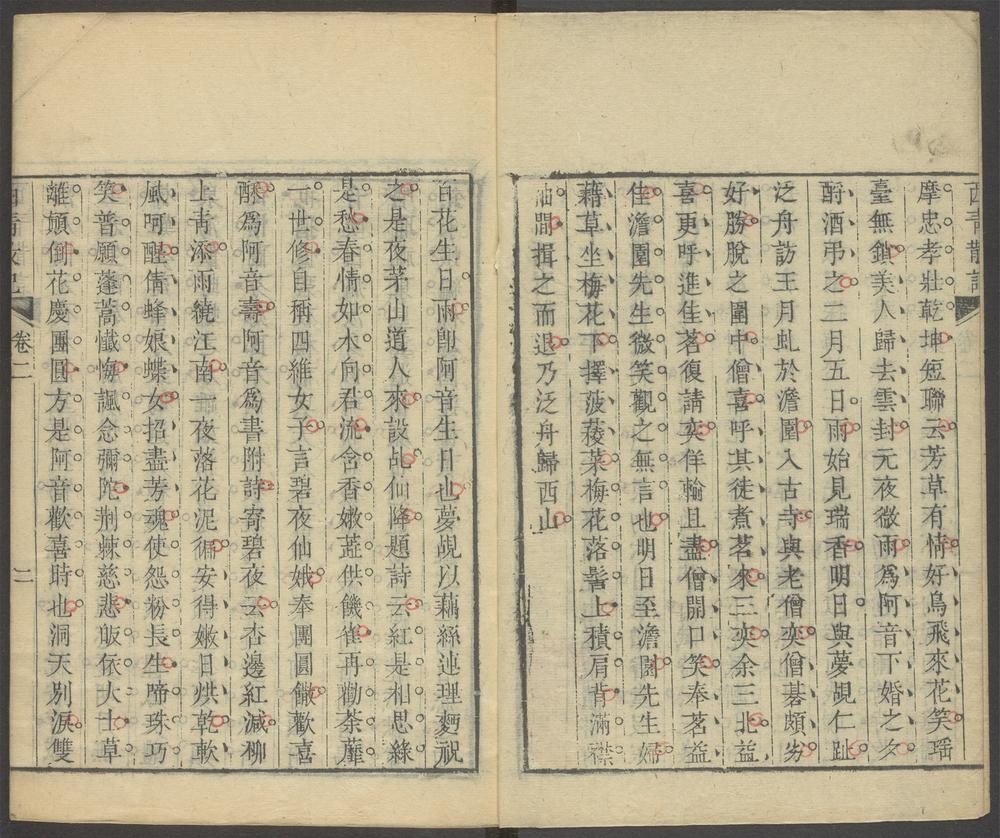 西青散記
摩忠孝壯乾坤短聯云芳草有情好鳥飛來花笑瑶
臺無鎖美人歸去雲封元夜微雨爲阿音下婚之夕
酹酒弔之二月五日雨始見瑞香明日與夢覘仁趾
泛舟訪王月虬於澹園入古寺與老僧奕僧碁頗劣
好勝脫之圍中僧喜呼其徒煮茗來三奕余三北益
喜更呼進佳茗復請奕佯輸且盡僧開口笑奉茗益
佳澹園先生微笑觀之無言也明日至澹園先生婦
藉草坐梅花下擇菠薐菜梅花落髻上積肩背滿襟
袖間揖之而退乃泛舟歸西山
百花生日雨卽阿音生日也夢覘以藕絲連理麪祝
之是夜茅山道人來設乩仙降題詩云紅是相思綠
是愁春情如水向君流含香嫩蕋供饑雀再勸荼蘼
一世修自稱四維女子言碧夜仙娥奉團圓䭔歡喜
酥爲阿音壽阿音爲書附詩寄碧夜云杏邊紅減柳
上青添雨繞江南一夜落花泥徧安得嫩日烘乾軟
風呵醒倩蜂娘蝶女招盡芳魂使怨粉長生啼珠巧
笑普願蓬蒿懺悔諷念彌陀荆棘慈悲皈依大士草
離顛倒花慶團圓方是阿音歡喜時也洞天別淚雙
西青散記
卷二
二